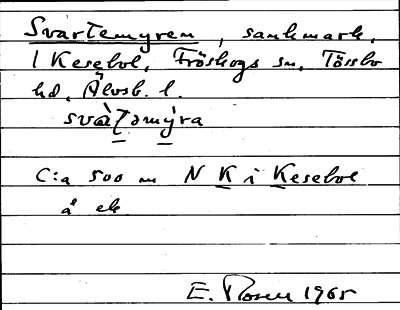 Svartemyren, sankmark,
1 Kesebol, Fröskogs sn, Tössbo
hd, Älvsb. l.
svàʈəmýra
C:a 500 m N K i Kesebol
å ek.
E. Rosen 1965